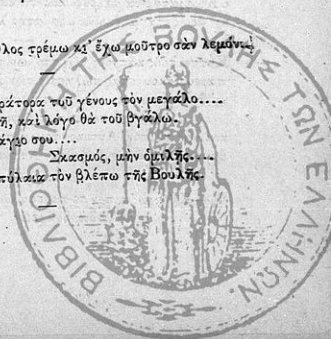 λος τρέμω κι' ἔχω μοῦτρο σὰν λεμόνι.
ράτορα τοῦ γένους τὸν μεγάλο....
ῆ, καὶ λόγο θὰ τοῦ βγάλω.
άγιο σου....
Σκασμός, μὴν ὁμιλῇς....
πύλαια τὸν βλέπω τῆς Βουλῆς.
ΒΙΒΛΙΟΘΗΚΗ ΤΗΣ ΒΟΥΛΗΣ ΤΩΝ ΕΛΛΗΝΩΝ